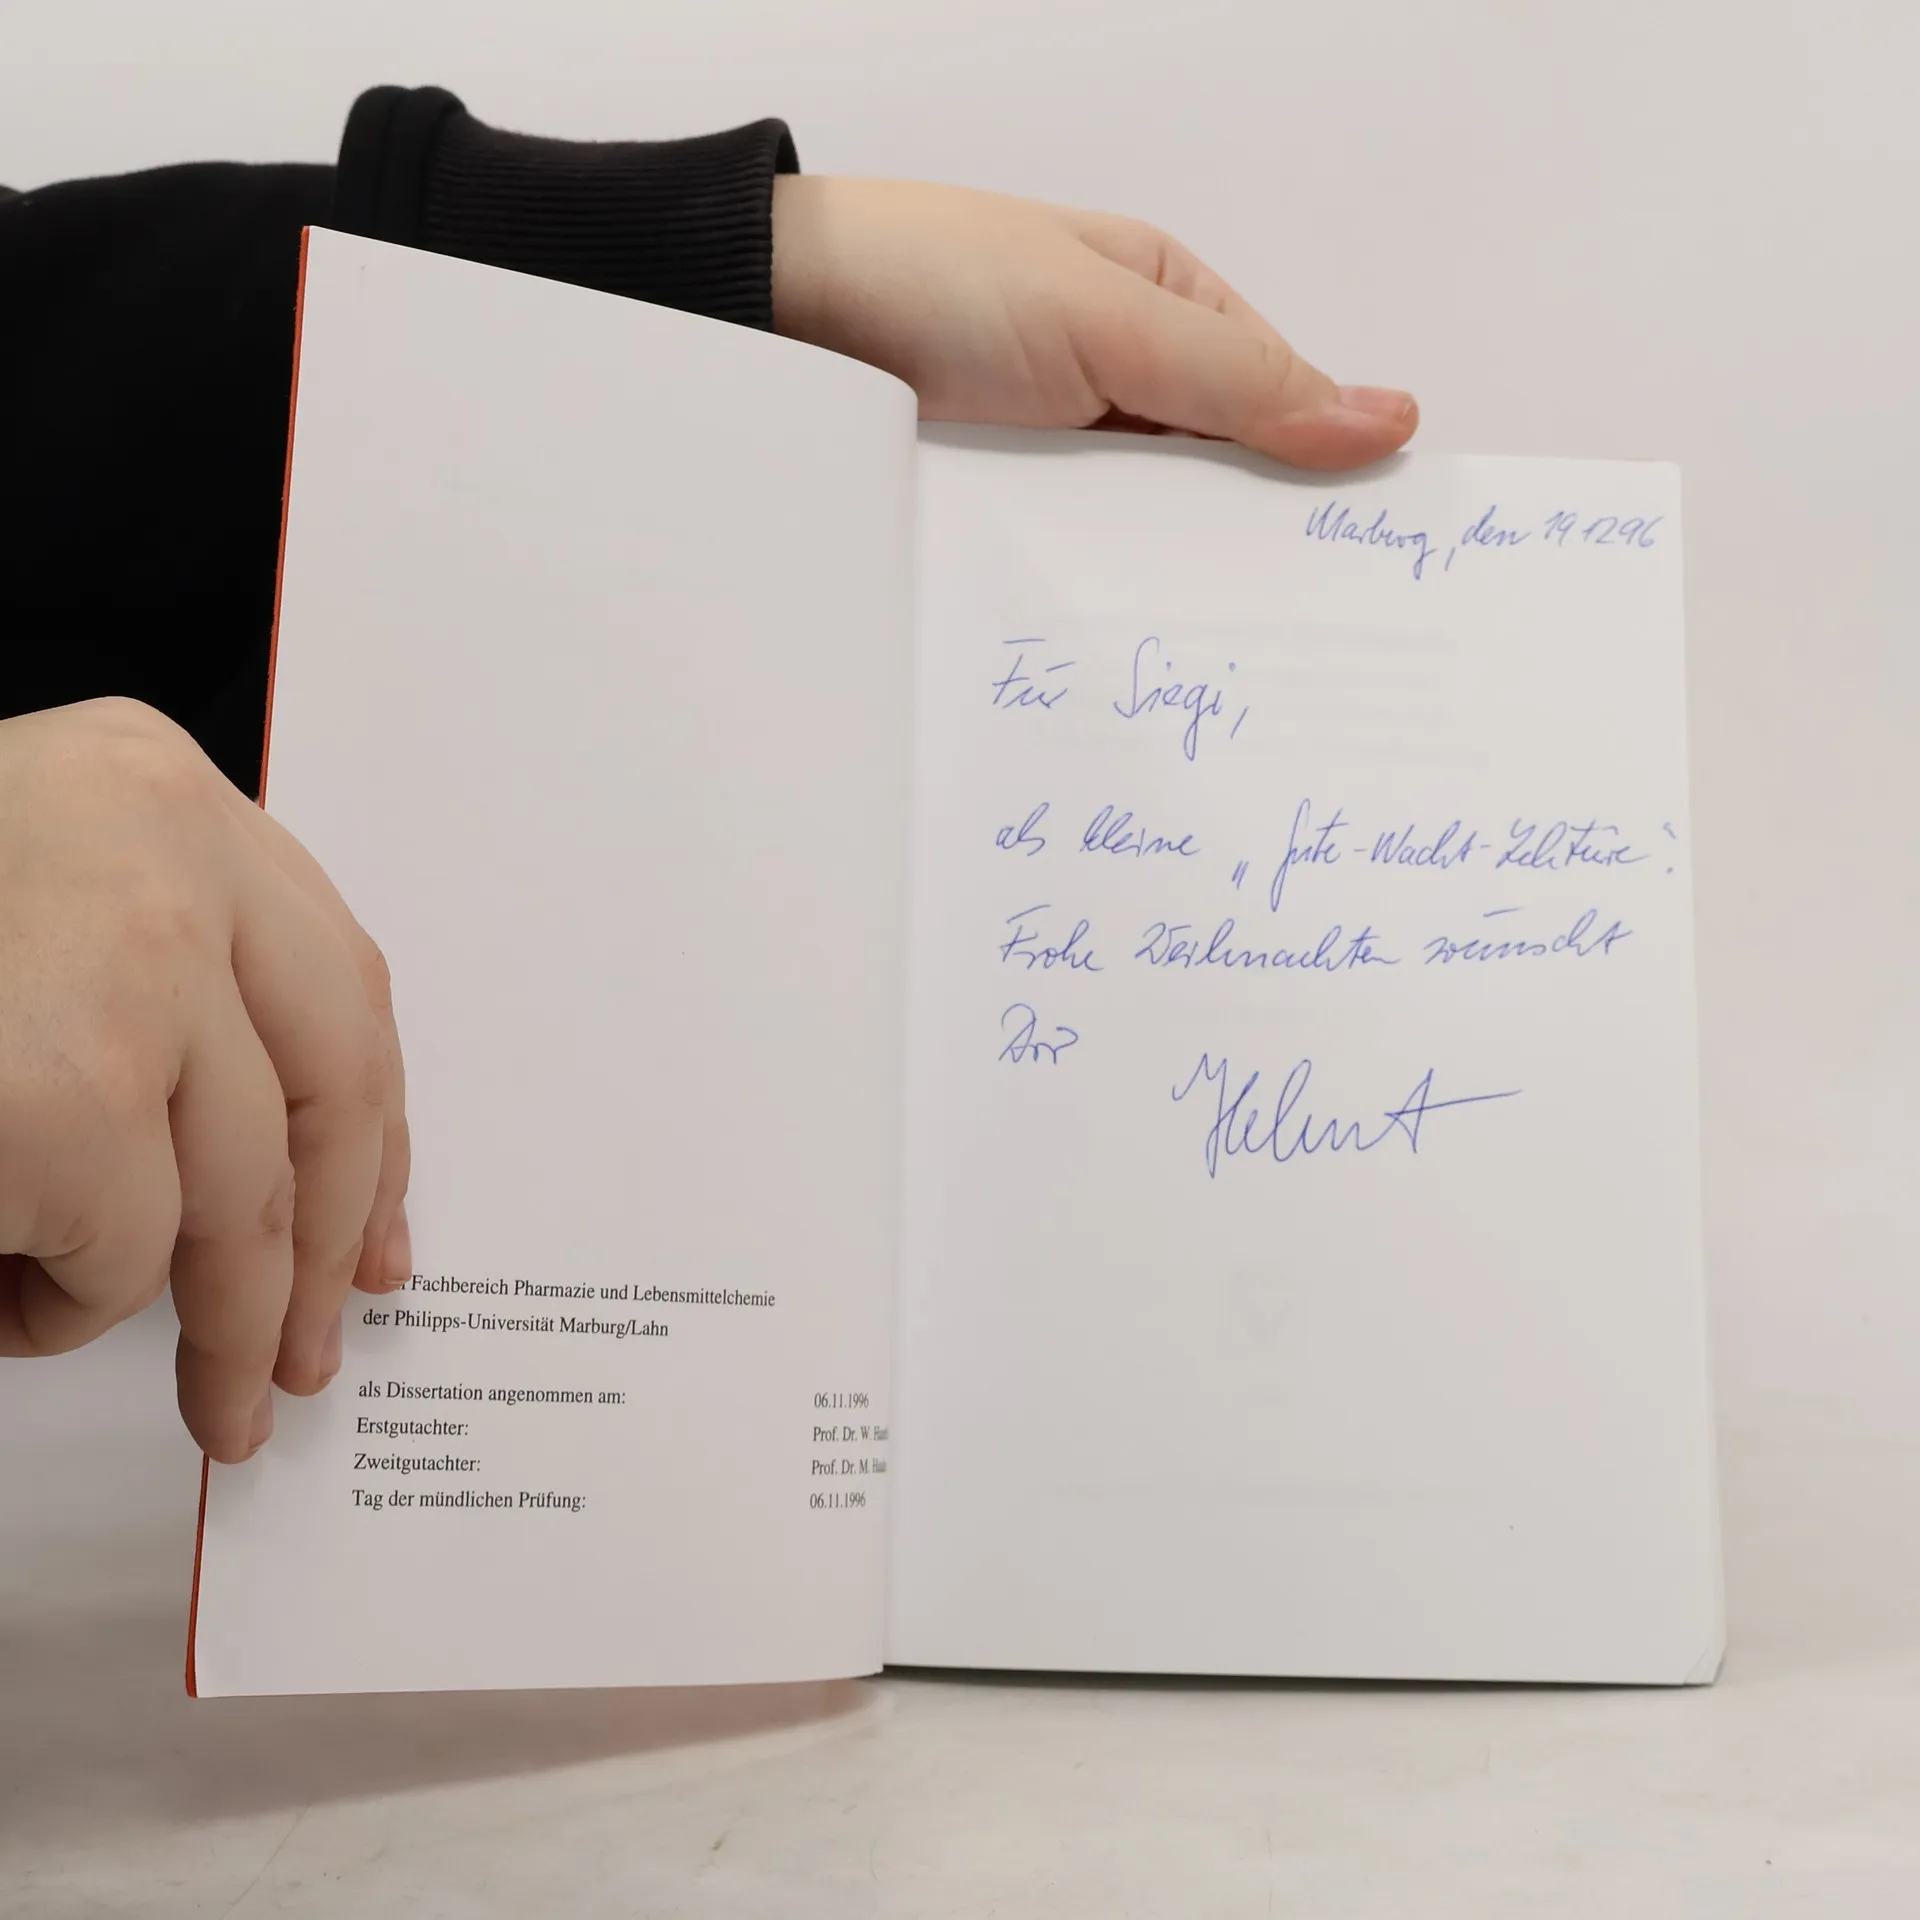 Fachbereich Pharmazie und Lebensmittelchemie
der Philipps-Universität Marburg/Lahn
als Dissertation angenommen am: 06.11.1996
Erstgutachter: Prof. Dr. W.
Zweitgutachter: Prof. Dr. M.
Tag der mündlichen Prüfung: 06.11.1996
Marburg, den 19.12.96
Für Siegi,
als kleine „Gute-Nacht-Lektüre“.
Frohe Weihnachten wünscht
Dir
Helmut